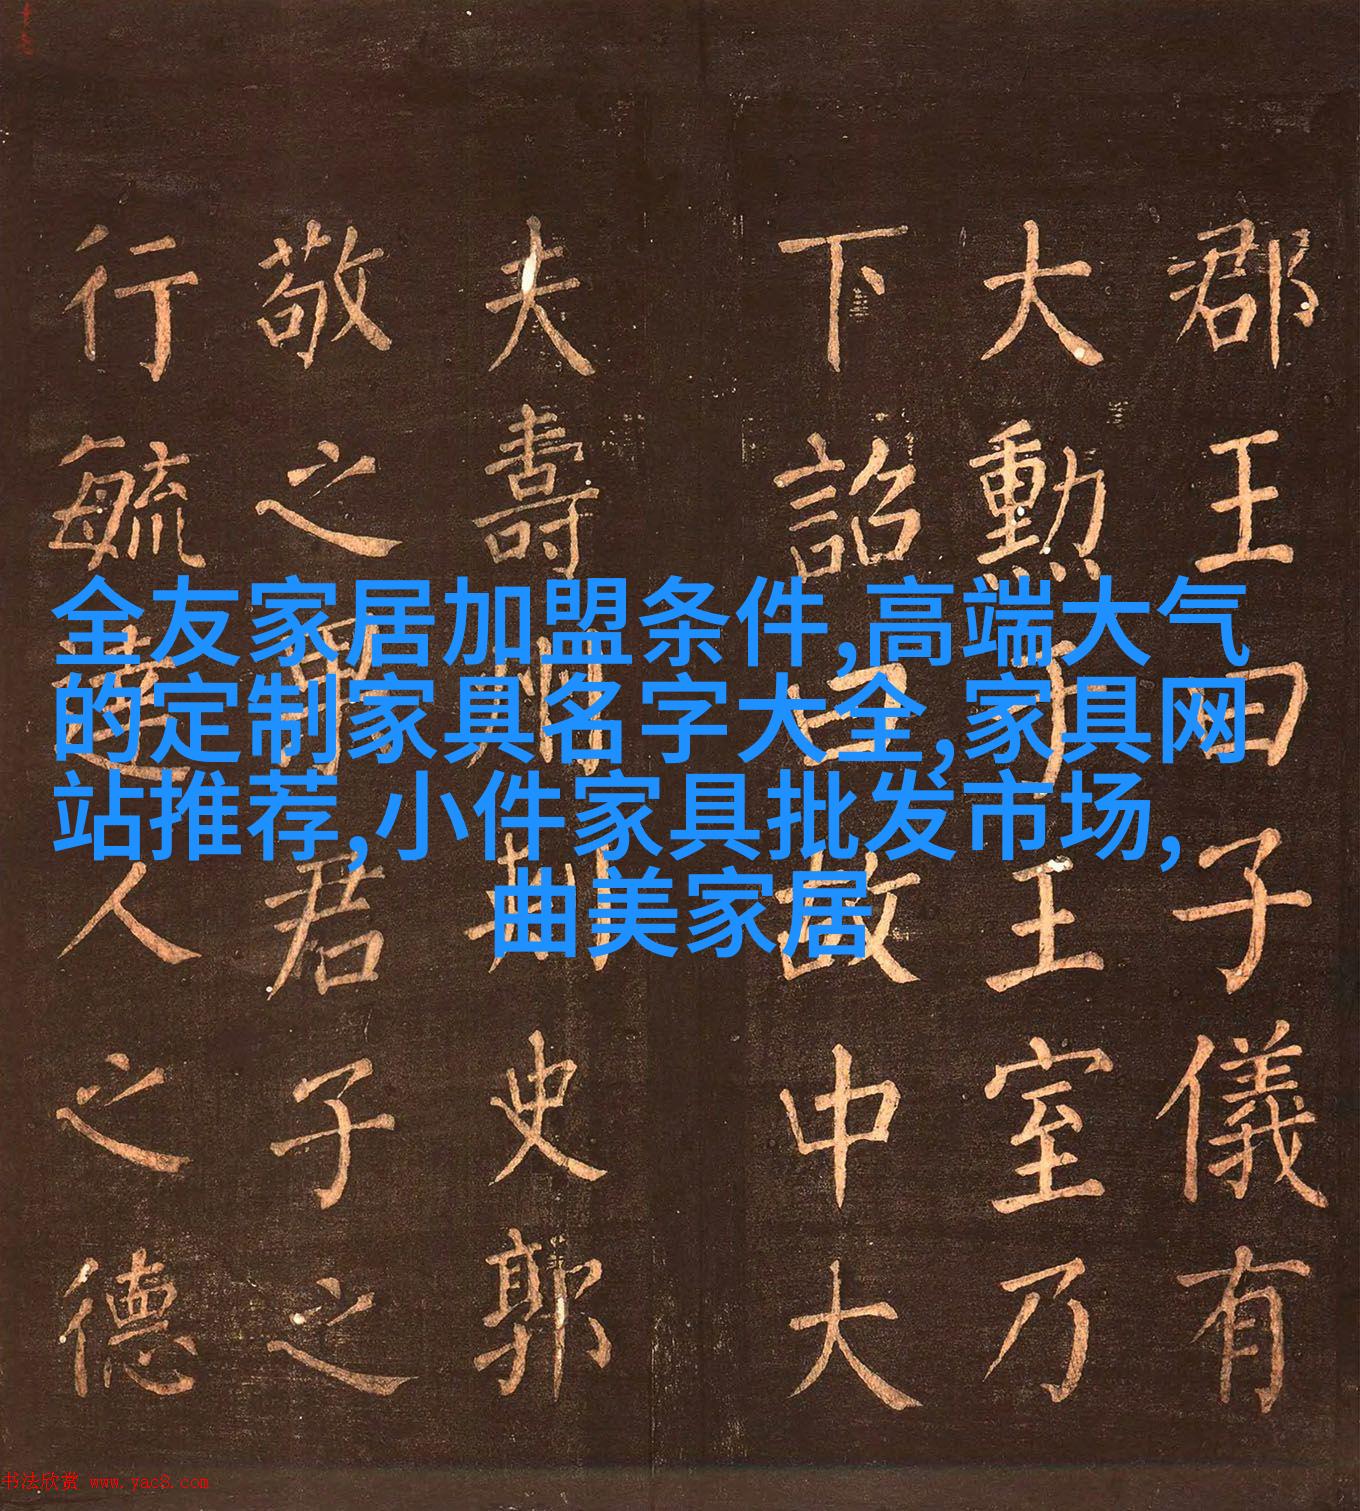 全友家居加盟条件,高端大气
的定制家具名字大全,家具网
站推荐,小件家具批发市场,
曲美家居
郡王曰子儀有
大勳于王室乃
下詔曰故中大
夫壽州刺史郭
敬之君子之
行毓達人之德
书法欣赏 www.yac8.com